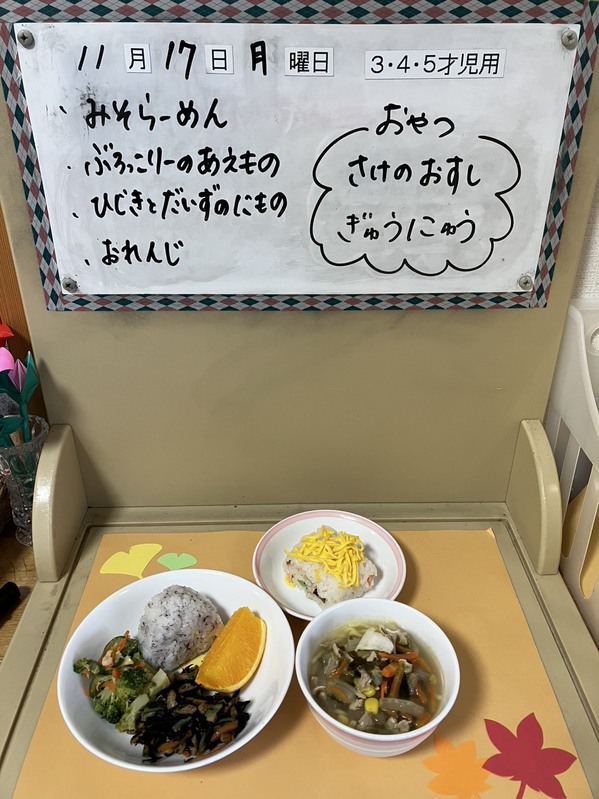 11月17日月曜日 3・4・5才児用
、みそらーめん
、ぶろっこりーのあえもの
、ひじきとだいずのにもの
、おれんじ
おやつ
さけのおすし
ぎゅうにゅう